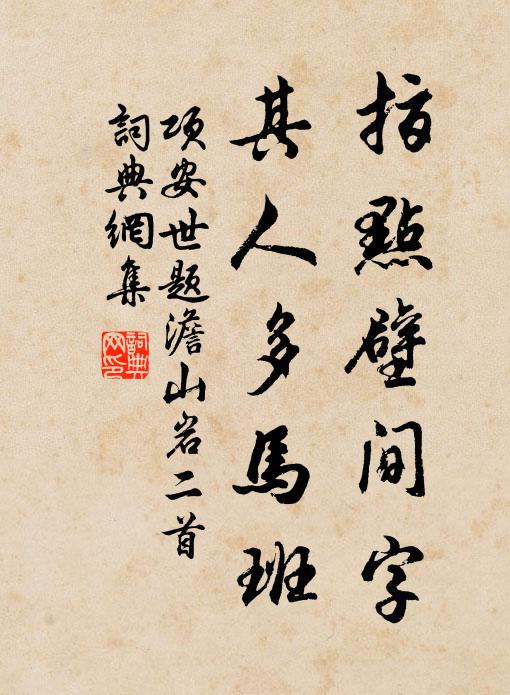 指點壁間字
其人多馬班
项安世题澹山岩二首
詞典網集
詞典網印